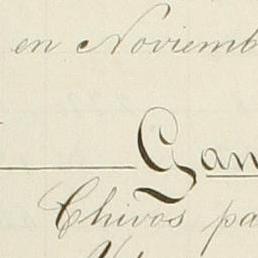 en Noviemb
Gan
Chivos pa